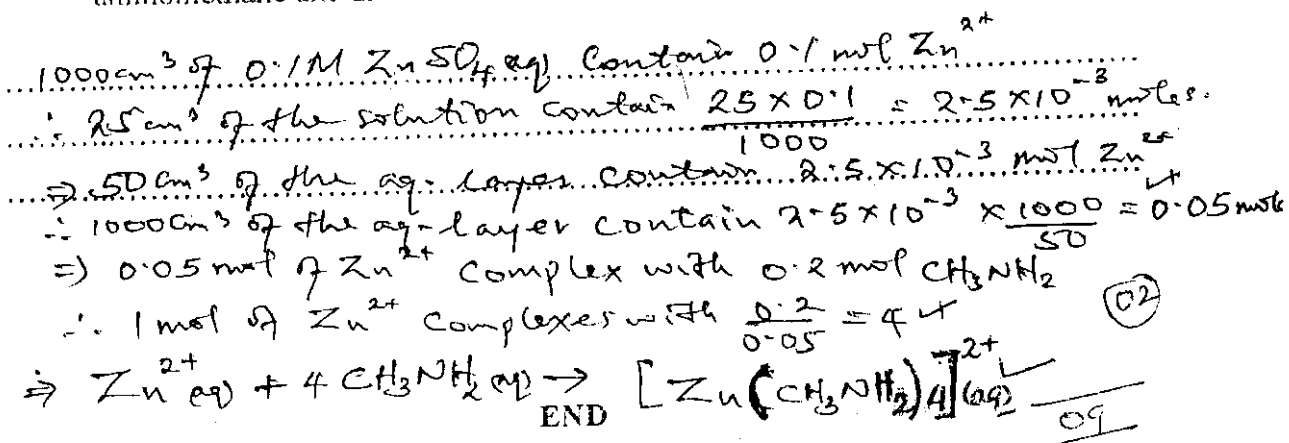 1000cm³ of 0.1M ZnSO₄(aq) Contain 0.1 mol Zn²⁺
∴ 25cm³ of the solution contain 25 × 0.1 / 1000 = 2.5 × 10⁻³ moles.
⇒ 50 cm³ of the aq. layer contain 2.5 × 10⁻³ mol Zn²⁺
∴ 1000cm³ of the aq-layer contain 2.5 × 10⁻³ × 1000 / 50 = 0.05 mole
⇒ 0.05 mol of Zn²⁺ complex with 0.2 mol CH₃NH₂
∴ 1 mol of Zn²⁺ complexes with 0.2 / 0.05 = 4 ✓
02
⇒ Zn²⁺(aq) + 4 CH₃NH₂(aq) → [Zn(CH₃NH₂)₄]²⁺(aq) ✓
END
09